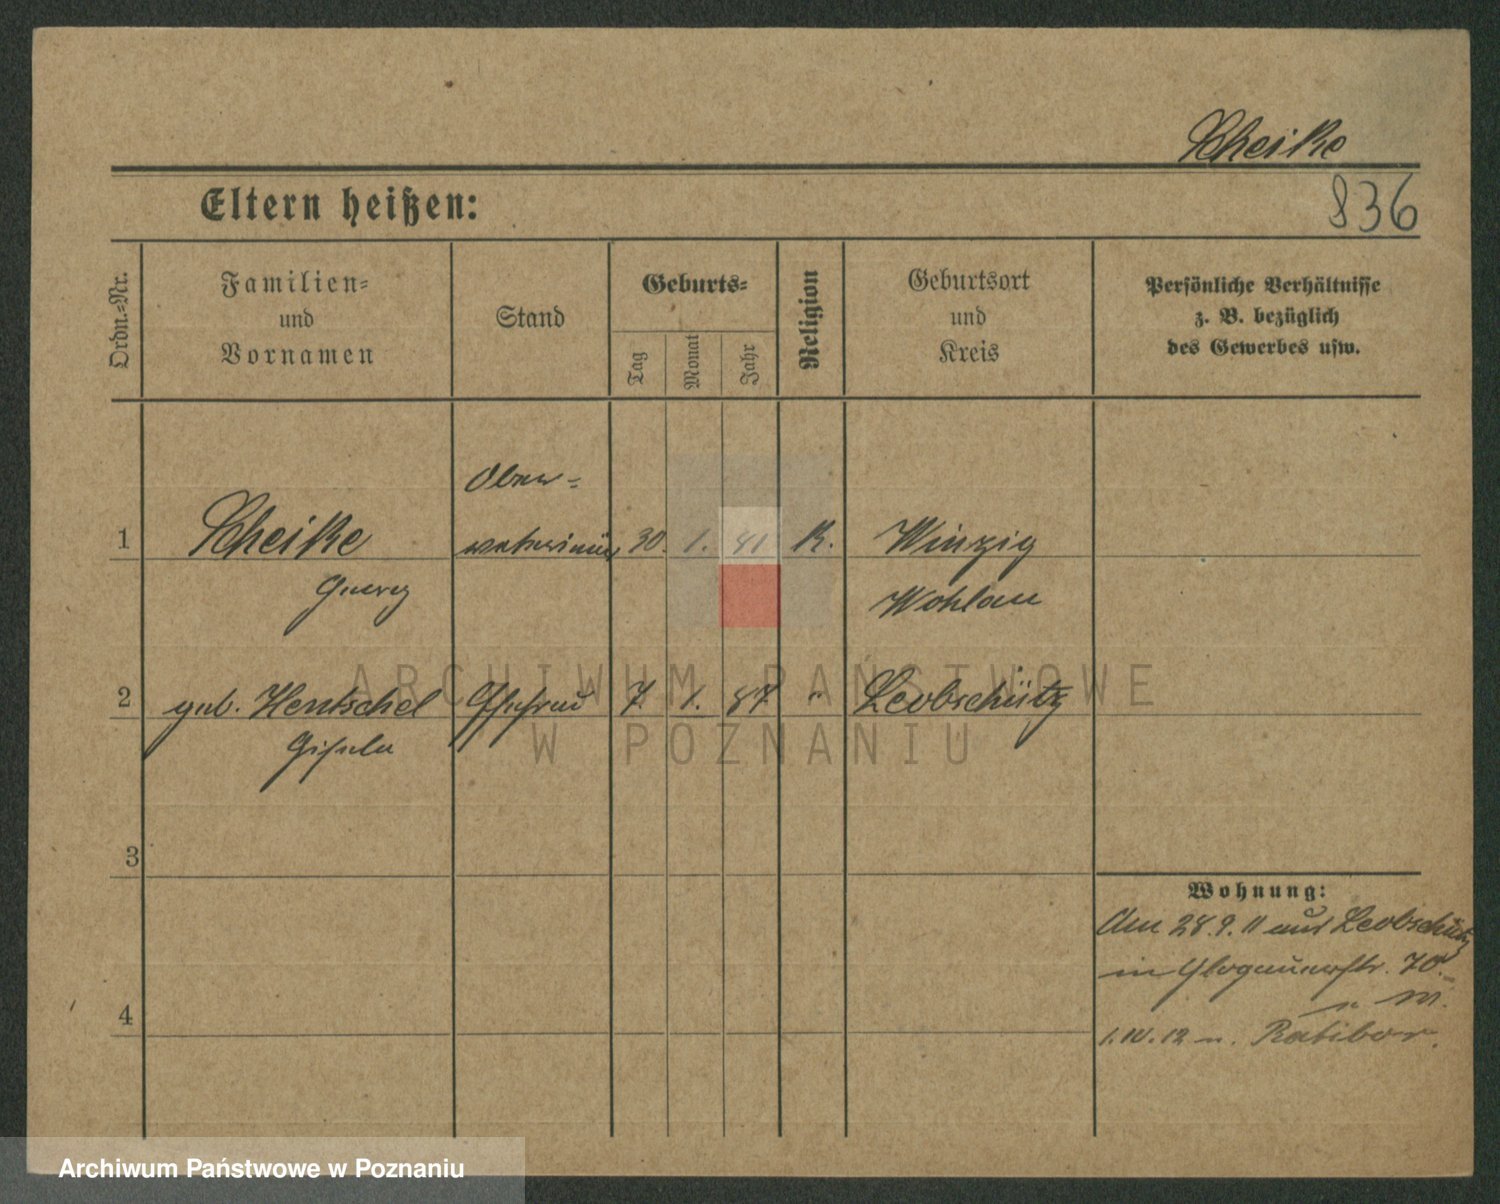 Scheike
Eltern heißen:
836
Ordn.=Nr.
Familien=
und
Vornamen
Stand
Geburts=
Tag
Monat
Jahr
Religion
Geburtsort
und
Kreis
Persönliche Verhältnisse
z. B. bezüglich
des Gewerbes usw.
Ober=
1 Scheike 30. 1. 81 K. Winzig
Georg
Wohlau
2 geb. Hentschel Ehefrau 7. 1. 87 " Leobschütz
Gisela
3
Wohnung:
Am 28.9.11 aus Leobschütz
in Glogauerstr. 70.
4
1.IV.12 n. Ratibor.
ARCHIWUM PAŃSTWOWE
W POZNANIU
Archiwum Państwowe w Poznaniu